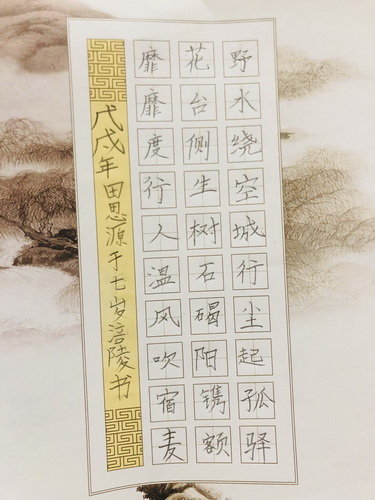 野水绕空城行尘起孤驿
花台侧生树石碣阳镌额
靡靡度行人温风吹宿麦
戊戌年田思源于七岁涪陵书